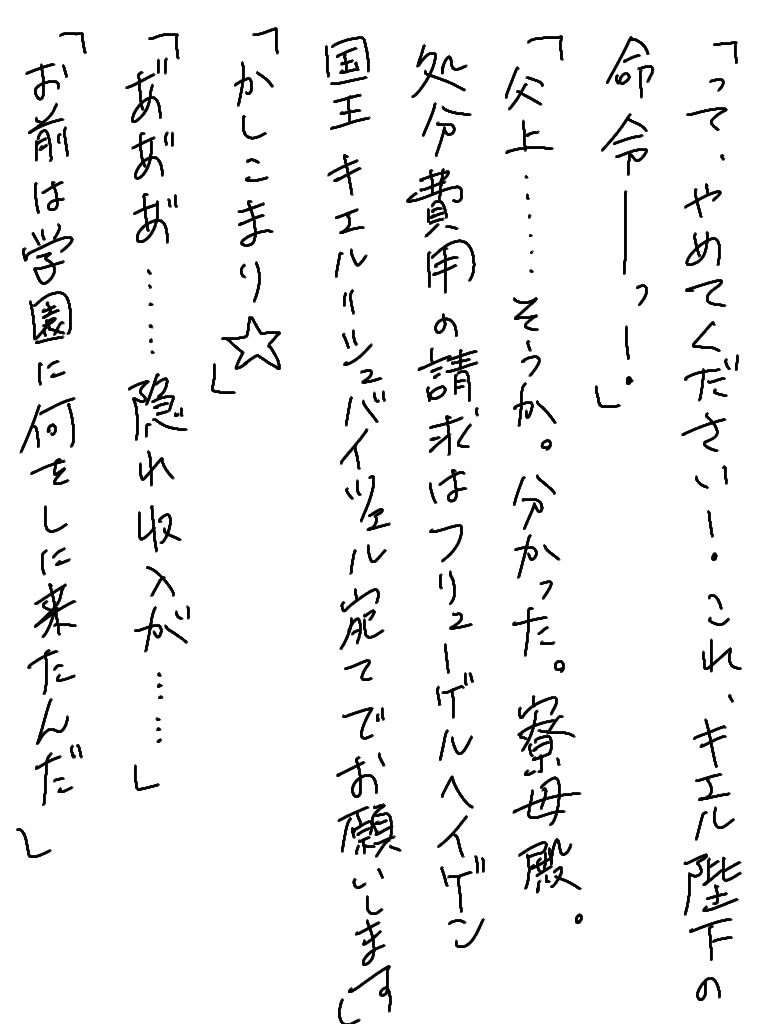 「って、やめてください！これ、キエル陛下の
命令――っ！」
「父上……そうか。分かった。寮母殿。
処分費用の請求はフリューゲルヘイゲン
国王キエルリッシュバイツェル宛てでお願いします」
「かしこまり☆」
「あ゙あ゙あ゙……隠れ収入が……」
「お前は学園に何をしに来たんだ」